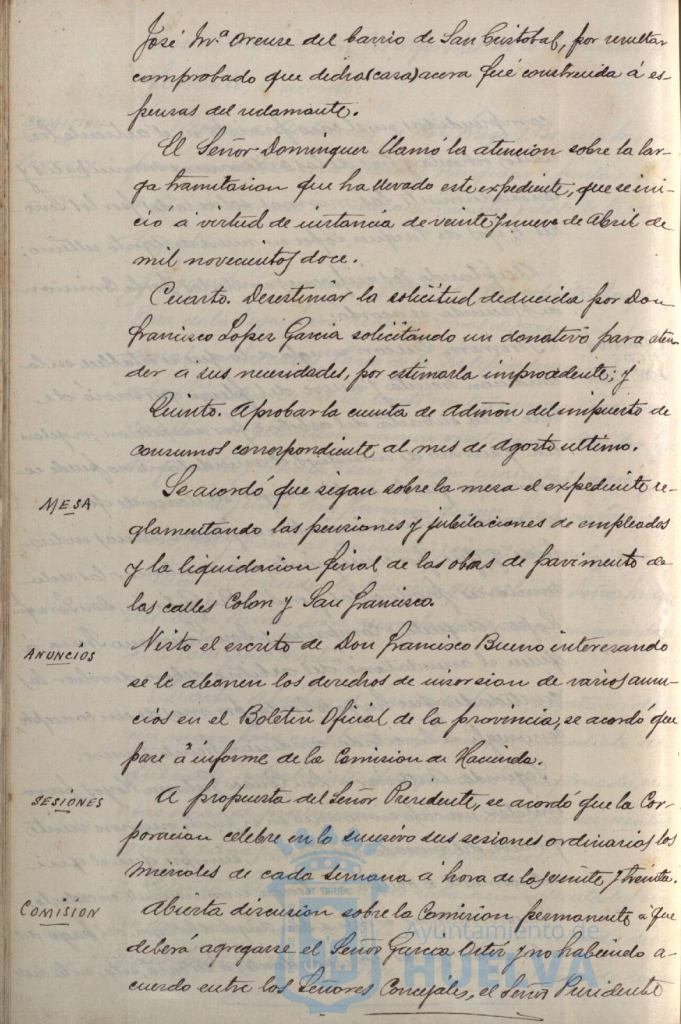 José Mª Orense del barrio de San Cristobal, por resultar
comprobado que dicha (casa) acera fué construida á es-
pensas del reclamante.
El Señor Dominguez llamó la atencion sobre la lar-
ga tramitasion que ha llevado este expediente, que se ini-
ció á virtud de instancia de veinte y nueve de Abril de
mil novecientos doce.
Cuarto. Desestimar la solicitud deducida por Don
Francisco Lopez Garcia solicitando un donativo para aten-
der á sus necesidades, por estimarla improcedente; y
Quinto. Aprobar la cuenta de Admon del impuesto de
consumos correspondiente al mes de Agosto ultimo.
MESA
Se acordó que sigan sobre la mesa el expediente re-
glamentando las pensiones y jubilaciones de empleados
y la liquidacion final de las obras de pavimento de
las calles Colon y San Francisco.
ANUNCIOS
Visto el escrito de Don Francisco Bueno interesando
se le abonen los derechos de insersion de varios anun-
cios en el Boletin Oficial de la provincia, se acordó que
pase á informe de la Comision de Hacienda.
SESIONES
A propuesta del Señor Presidente, se acordó que la Cor-
poracion celebre en lo sucesivo sus sesiones ordinarias los
miércoles de cada semana á hora de las veinte y treinta.
COMISION
Abierta discusion sobre la Comision permanente á que
deberá agregarse el Señor Garcia Ortiz y no habiendo a-
cuerdo entre los Señores Concejales, el Señor Presidente
Ayuntamiento de
HUELVA